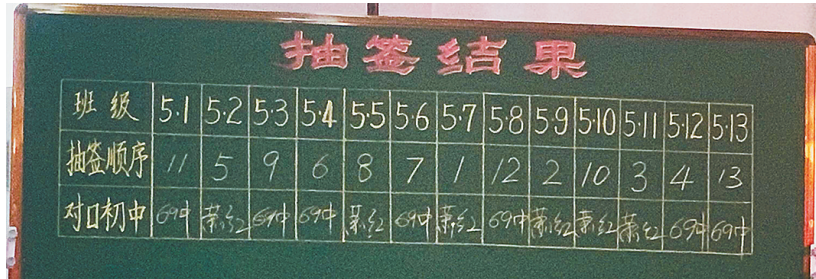 抽签结果
班级 5·1 5·2 5·3 5·4 5·5 5·6 5·7 5·8 5·9 5·10 5·11 5·12 5·13
抽签顺序 11 5 9 6 8 7 1 12 2 10 3 4 13
对口初中 69中 萧红 69中 69中 萧红 69中 萧红 69中 萧红 萧红 萧红 69中 69中